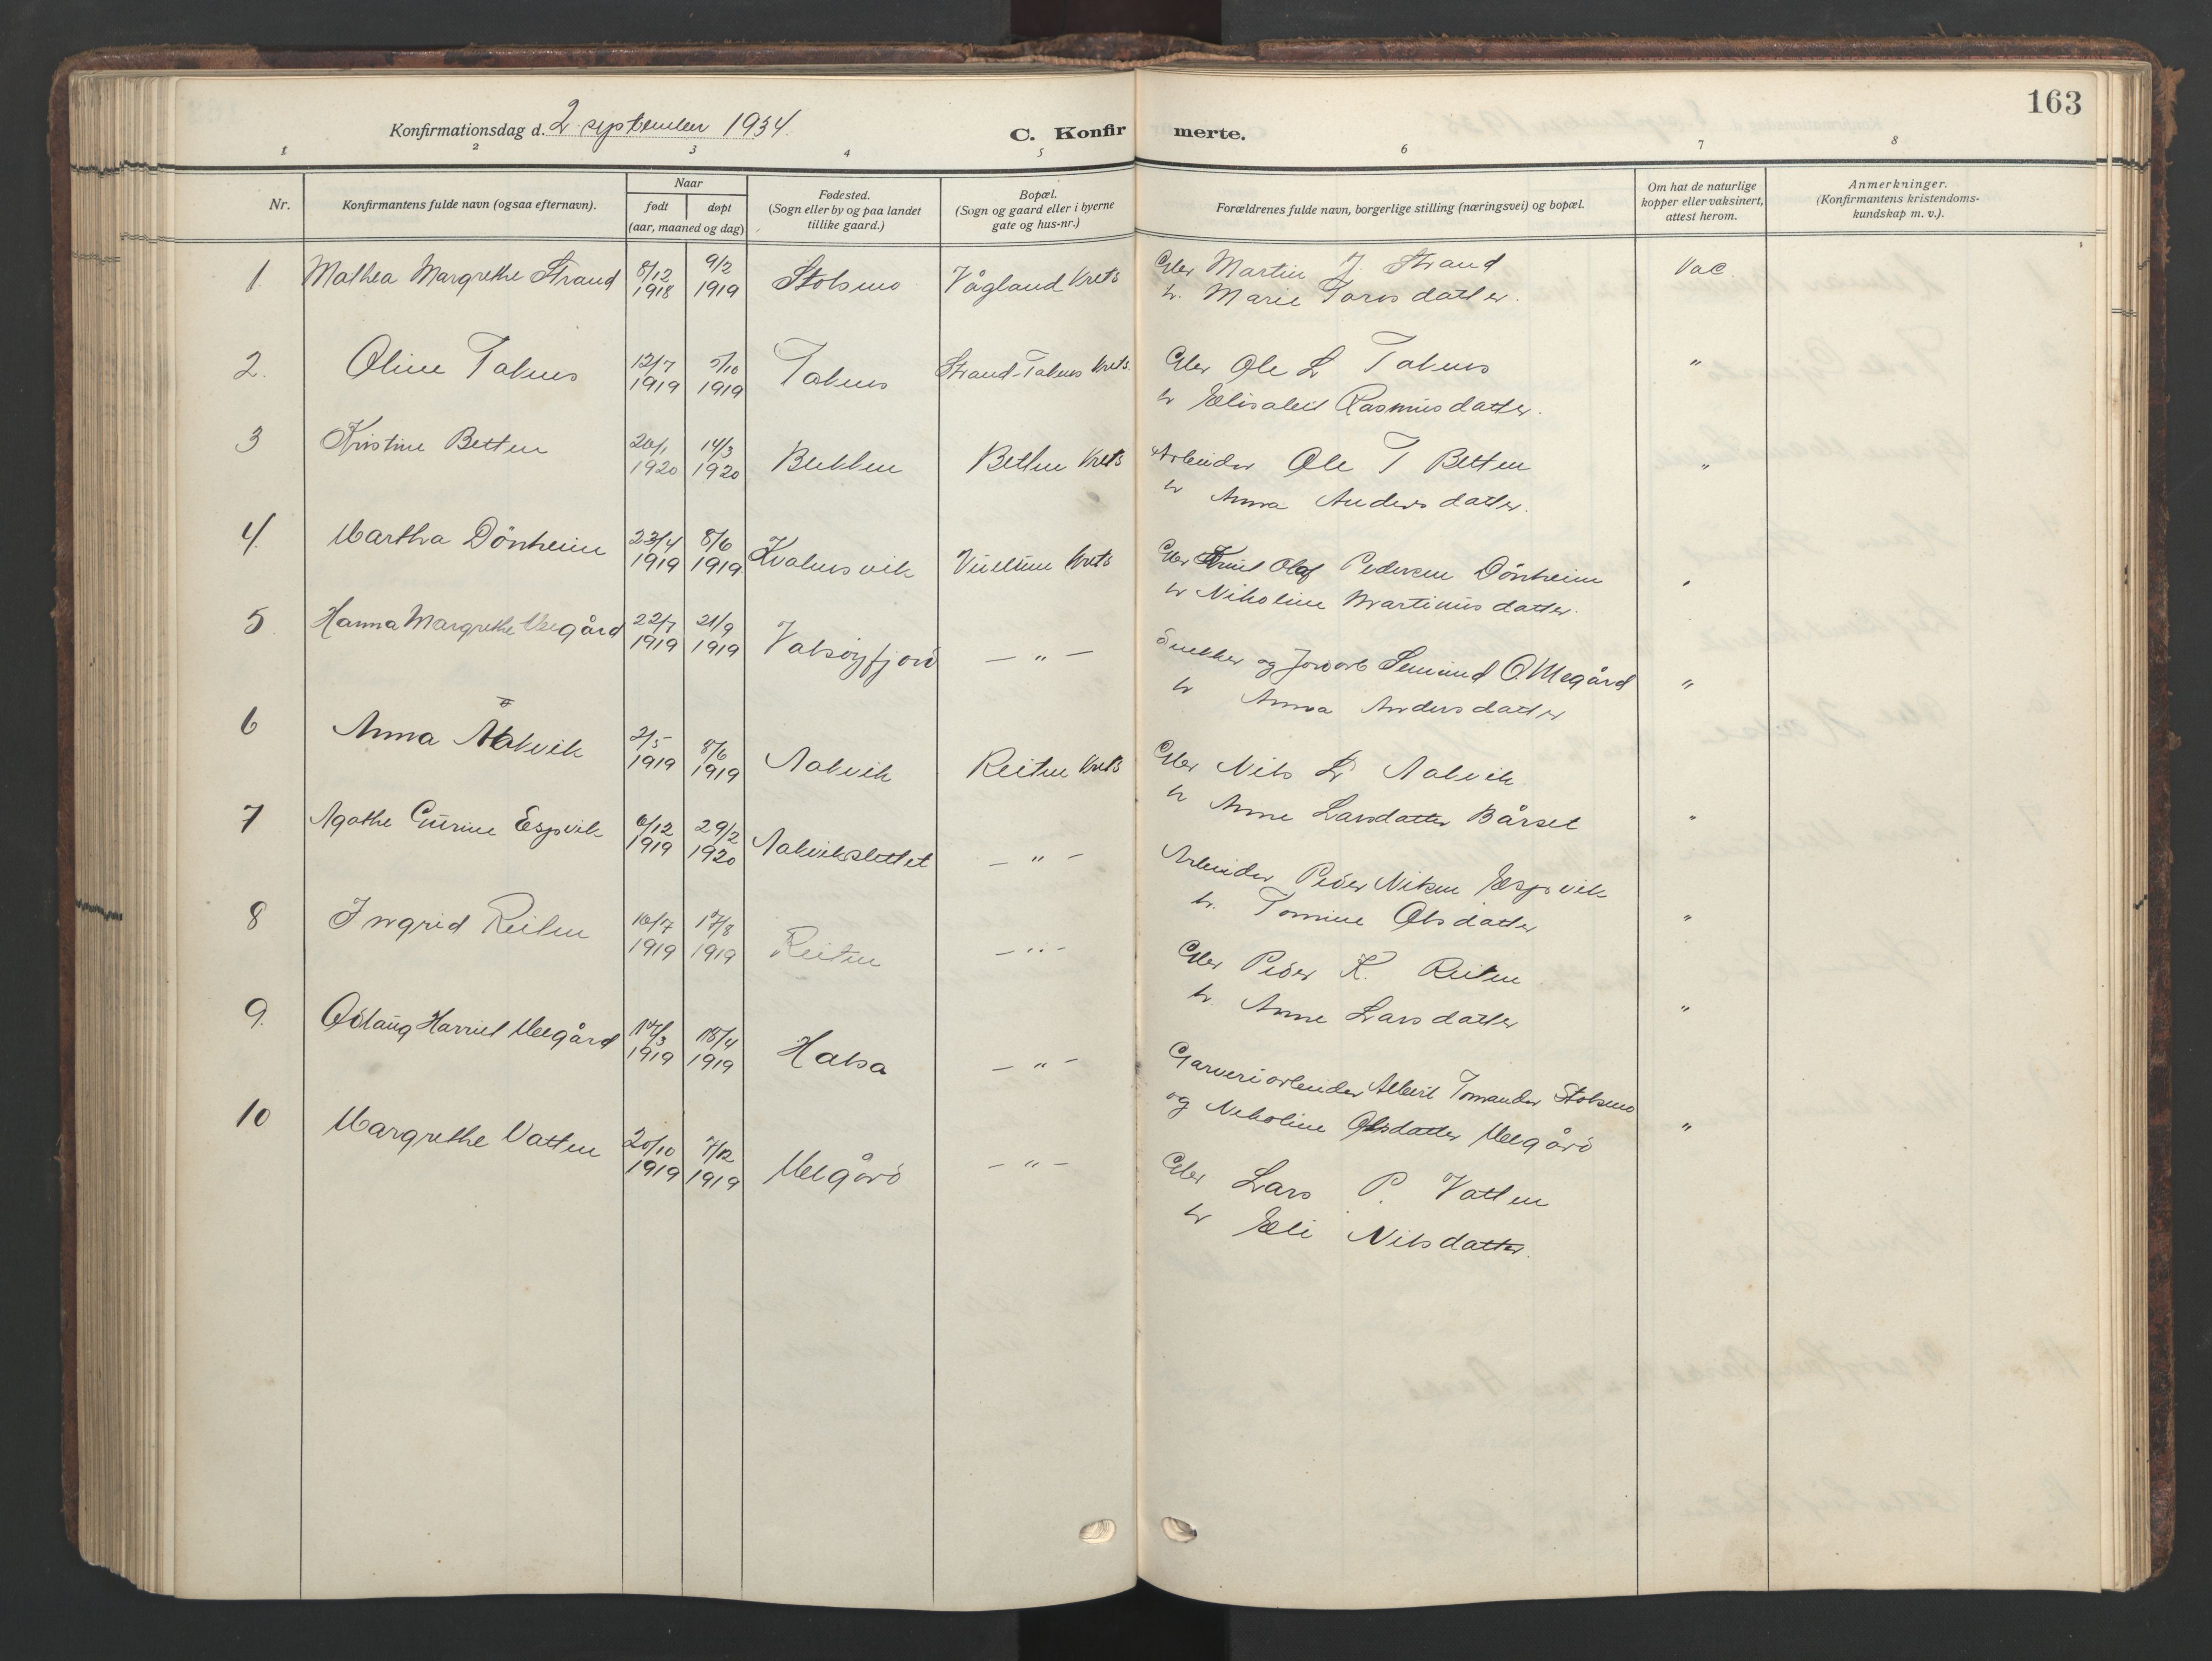 163
Konfirmationsdag d. 2 september 1934.
C. Konfirmerte.
1 2 3 4 5 6 7 8
Nr.
Konfirmantens fulde navn (ogsaa efternavn).
Naar
født døpt
(aar, maaned og dag)
Fødested.
(Sogn eller by og paa landet
tillike gaard.)
Bopæl.
(Sogn og gaard eller i byerne
gate og hus-nr.)
Forældrenes fulde navn, borgerlige stilling (næringsvei) og bopæl.
Om hat de naturlige
kopper eller vaksinert,
attest herom.
Anmerkninger.
(Konfirmantens kristendoms-
kundskap m. v.).
1. Mathea Margrethe Strand 8/12 1918 9/2 1919 Stolsmo Vågland Krets
Gbr Martin J. Strand
h. Marie Larsdatter.
Vac.
2. Oline Taknes 12/7 1919 5/10 1919 Taknes Strand-Taknes Krets.
Gbr Ole L Taknes
h Elisabet Rasmusdatter.
"
3 Kristine Betten 20/1 1920 14/3 1920 Bukken Betten Krets
Arbeider Ole T Betten
h Anna Andersdatter.
"
4. Martha Dönheim 23/4 1919 8/6 1919 Kvalnesvik Krets
Gbr Olaf Pedersen Dönheim
h Nikoline Martinusdatter.
"
5. Hanna Margrethe Megård 22/7 1919 21/9 1919 Valsøyfjord — " —
Snekker og Jordarb Semund O. Megård
h Anna Andersdatter
"
6 Anna Aakvik 2/5 1919 8/6 1919 Aakvik Reiten Krets
Gbr Nils L Aakvik
h Anne Larsdatter Bårset
"
7 Agathe Gurine Espvik 6/12 1919 29/2 1920 Aakvikslettet — " —
Arbeider Peder Nilsen Espvik
h. Tomine Olsdatter
"
8 Ingrid Reiten 10/7 1919 17/8 1919 Reiten — " —
Gbr Peder K. Reiten
h. Anne Larsdatter
"
9. Odlaug Harriet Megård 14/3 1919 18/4 1919 Halsa — " —
Garveriarbeider Albert Tomander Stolsmo
og Nikoline Olsdatter Megård
"
10 Margrethe Vatten 20/10 1919 7/12 1919 Megård — " —
Gbr Lars P. Vatten
h Eli Nilsdatter.